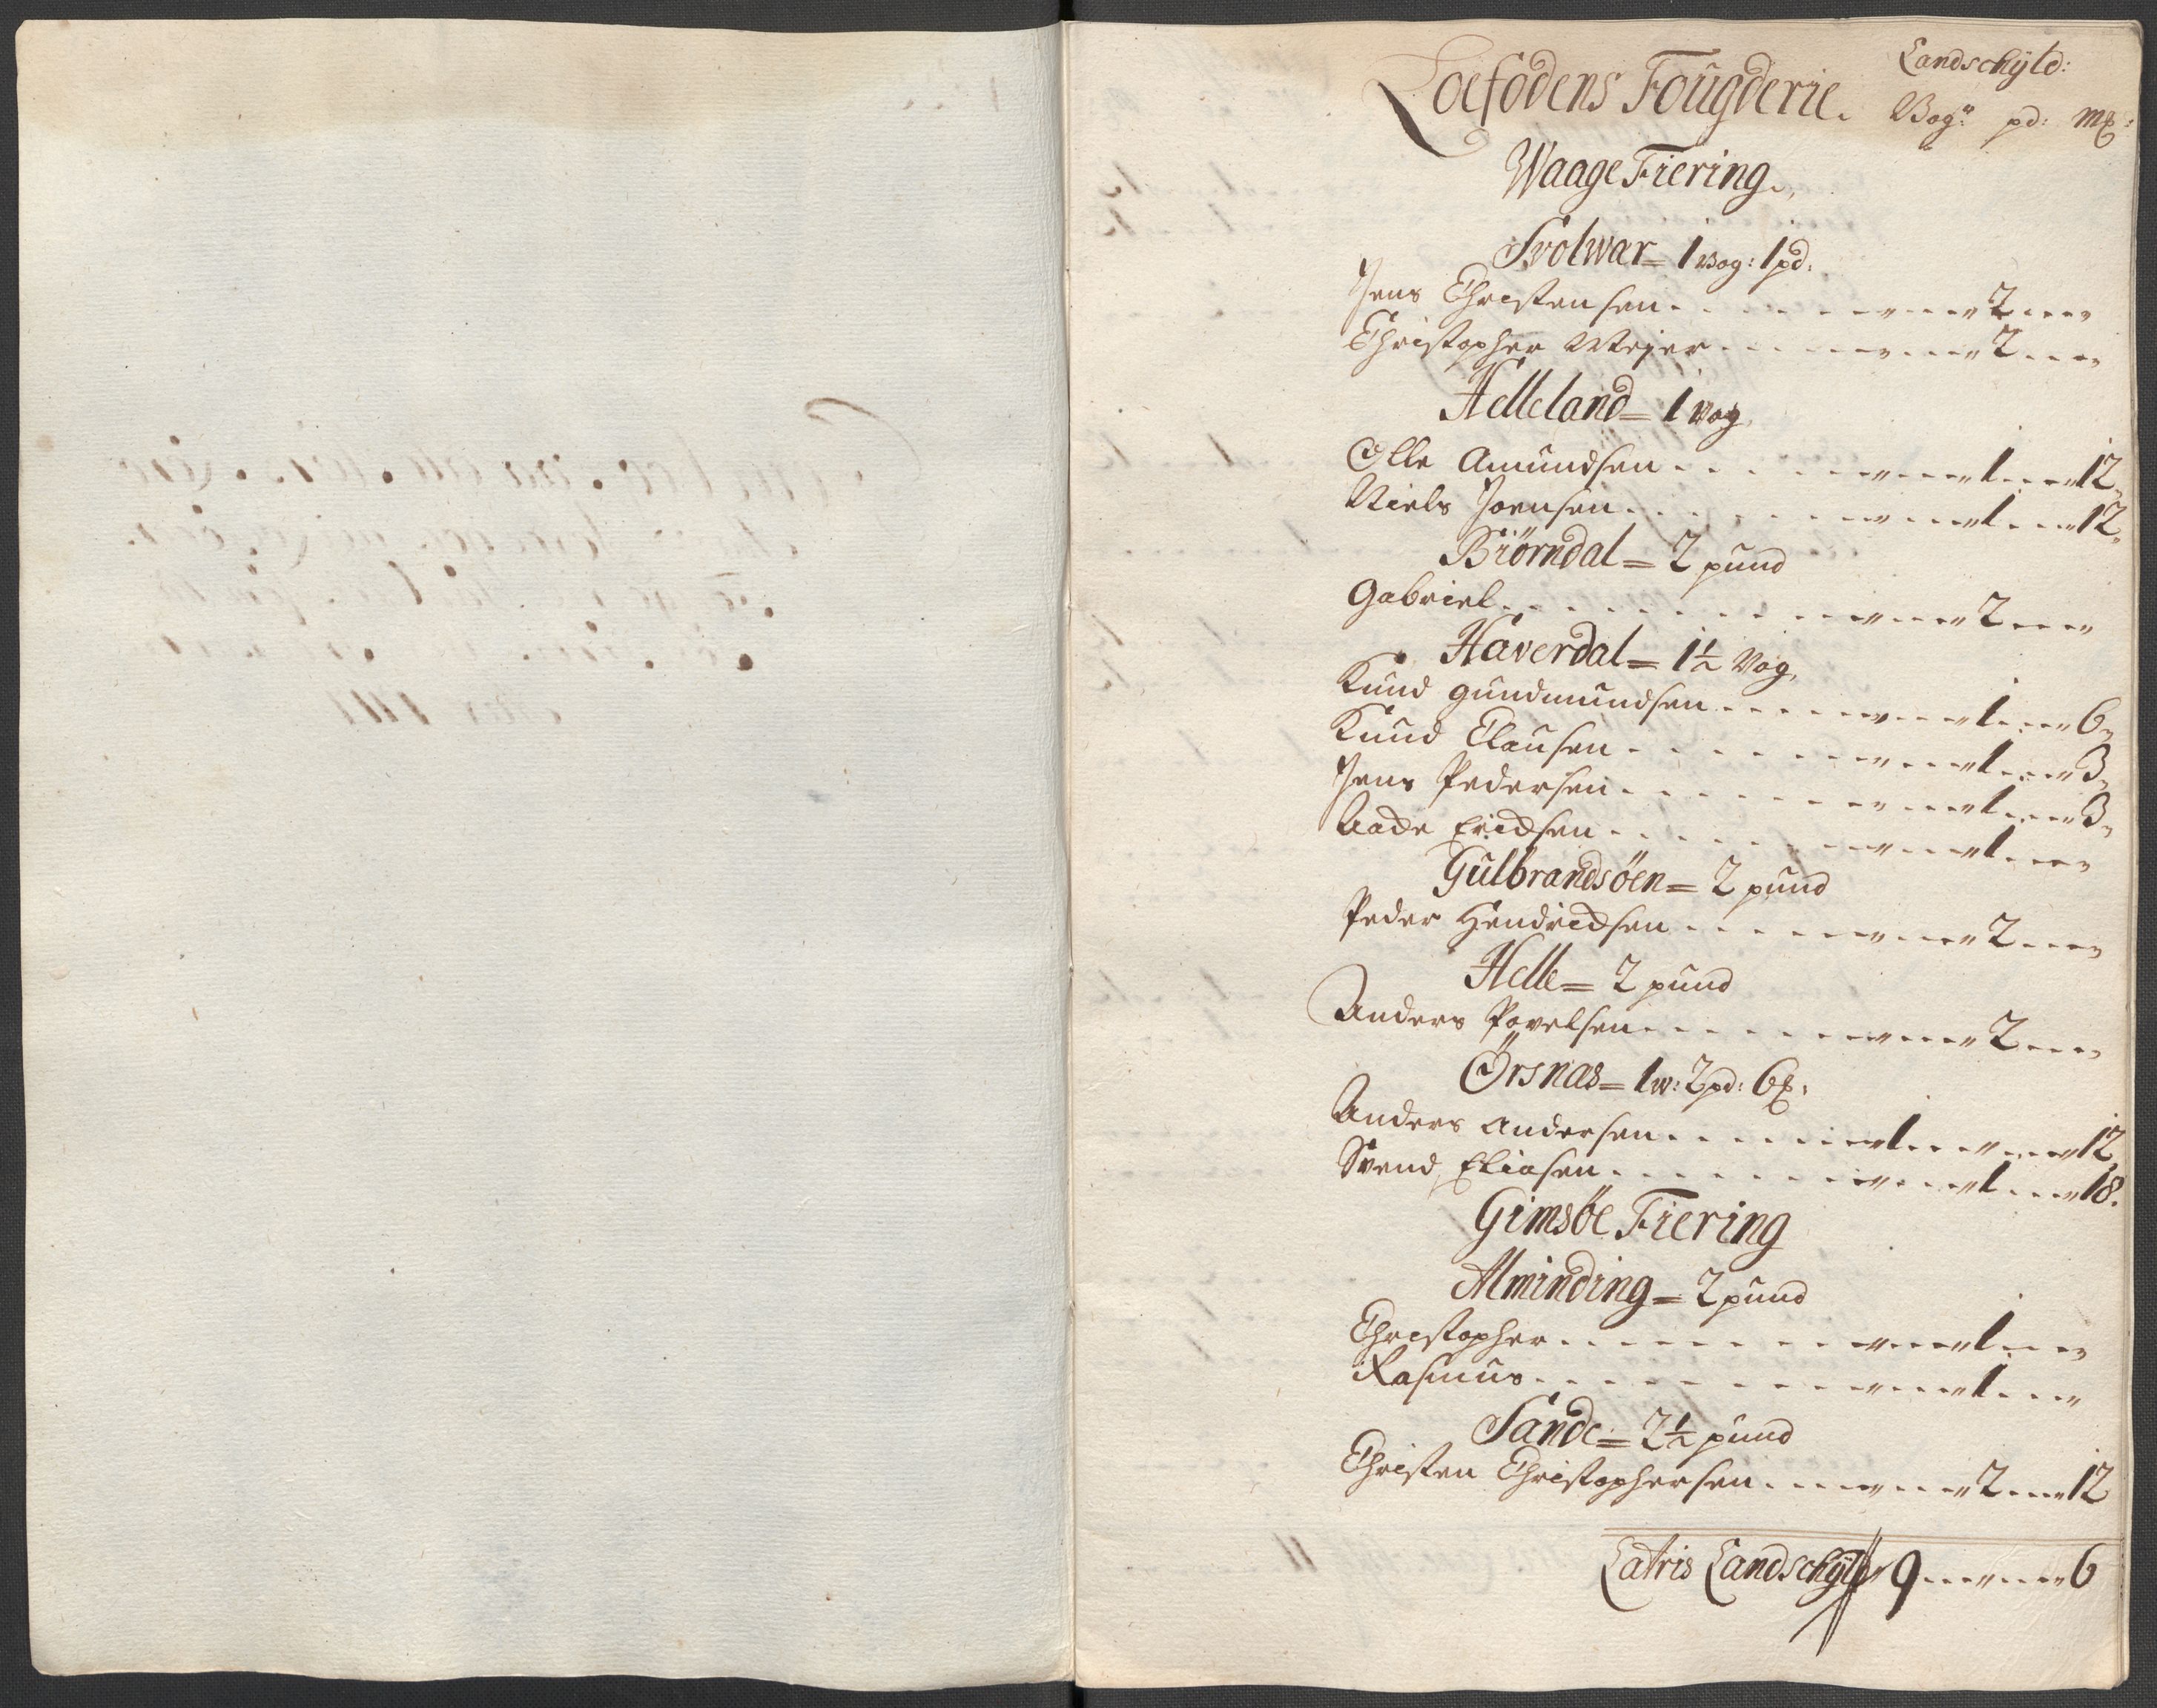 Landschÿld:
Loefodens Foügderie. Vog: pd: m&:
Waage Fiering.
Svolwar = 1 vog: 1 pd:
Jens Christensen . . . . . " . . . " 2 . . . "
Christopher Meyer . . . . . " . . . " 2 . . . "
Helleland = 1 vog
Olle Amundsen . . . . . " . . . " 1 . . . " 12.
Niels Joensen . . . . . " . . . " 1 . . . " 12.
Biörndal = 2 pund
Gabriel . . . . . " . . . " 2 . . . "
Haverdal = 1½ Vog.
Knud Gundmundsen . . . . . " . . . " 1 . . . " 6.
Knud Clausen . . . . . " . . . " 1 . . . " 3.
Jens Pedersen . . . . . " . . . " 1 . . . " 3.
Aade Ericksen . . . . . " . . . " 1 . . . "
Gülbrandsöen = 2 pund
Peder Hendricksen . . . . . " . . . " 2 . . . "
Helle = 2 pund
Anders Povelsen . . . . . " . . . " 2 . . . "
Örsnas = 1 w: 2 pd: 6 &:
Anders Andersen . . . . . " 1 . . . " . . . " 12.
Svend Eliasen . . . . . " . . . " 1 . . . " 18.
Gimsöe Fiering
Alminding = 2 pund
Christopher . . . . . " . . . " 1 . . . "
Rasmus . . . . . " . . . " 1 . . . "
Sande = 2½ pund
Christen Christophersen . . . . . " . . . " 2 . . . " 12
Latris Landschÿld 9 . . . " . . . " 6